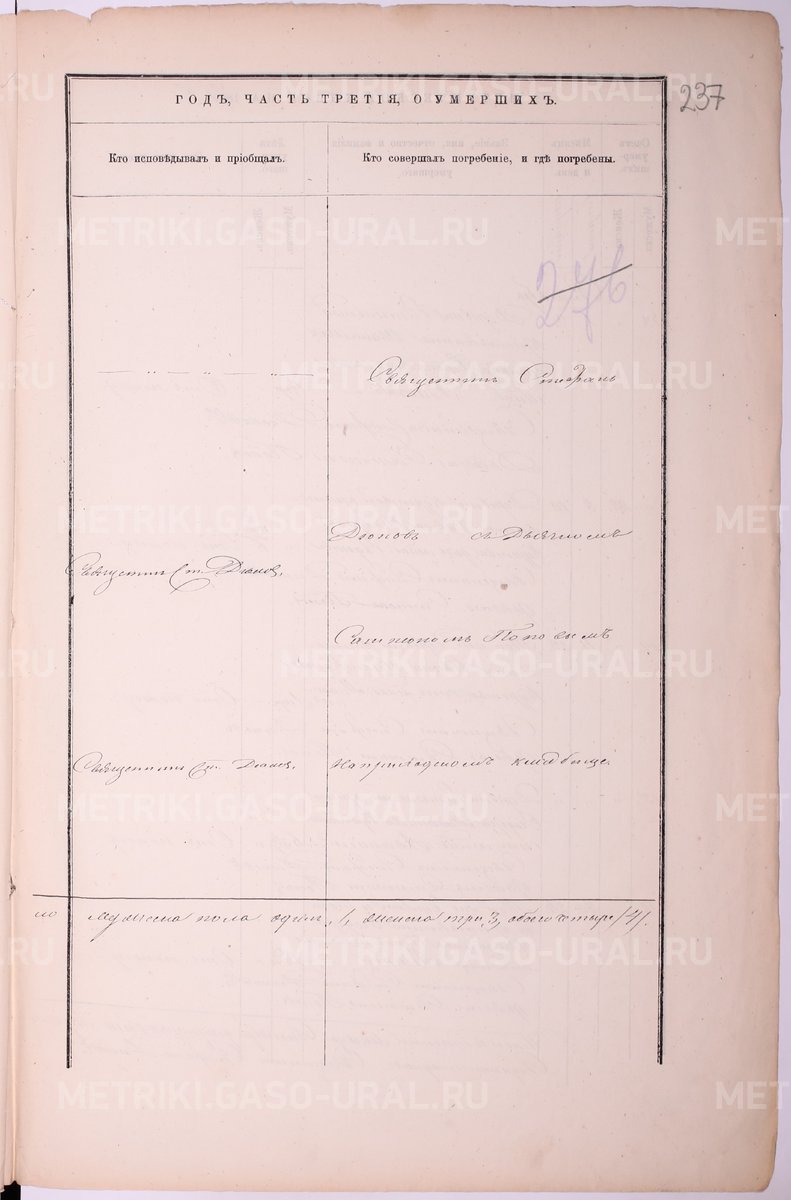 237
ГОДЪ, ЧАСТЬ ТРЕТІЯ, О УМЕРШИХЪ.
Кто исповѣдывалъ и пріобщалъ.
Кто совершалъ погребеніе, и гдѣ погребены.
276
Священникъ Стефанъ
съ Дьячкомъ
Священникъ Ст.
Поповымъ
Священникъ Ст.
На приходскомъ кладбище.
ло
мужеска пола одинъ, 1, женска три 3, обоего четыре /4/.
METRIKI.GASO-URAL.RU